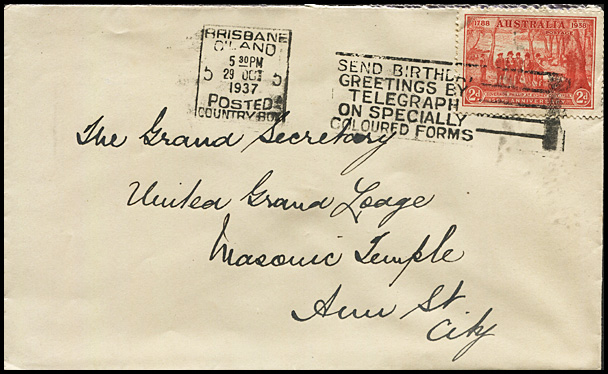 BRISBANE
Q'LAND
5 30PM
5 29 OCT 5
1937
POSTED
COUNTRY BOX
SEND BIRTHDAY
GREETINGS BY
TELEGRAPH
ON SPECIALLY
COLOURED FORMS
1788 AUSTRALIA 1938
POSTAGE
2d 2d
150TH ANNIVERSARY
The Grand Secretary
United Grand Lodge
Masonic Temple
Ann St
City